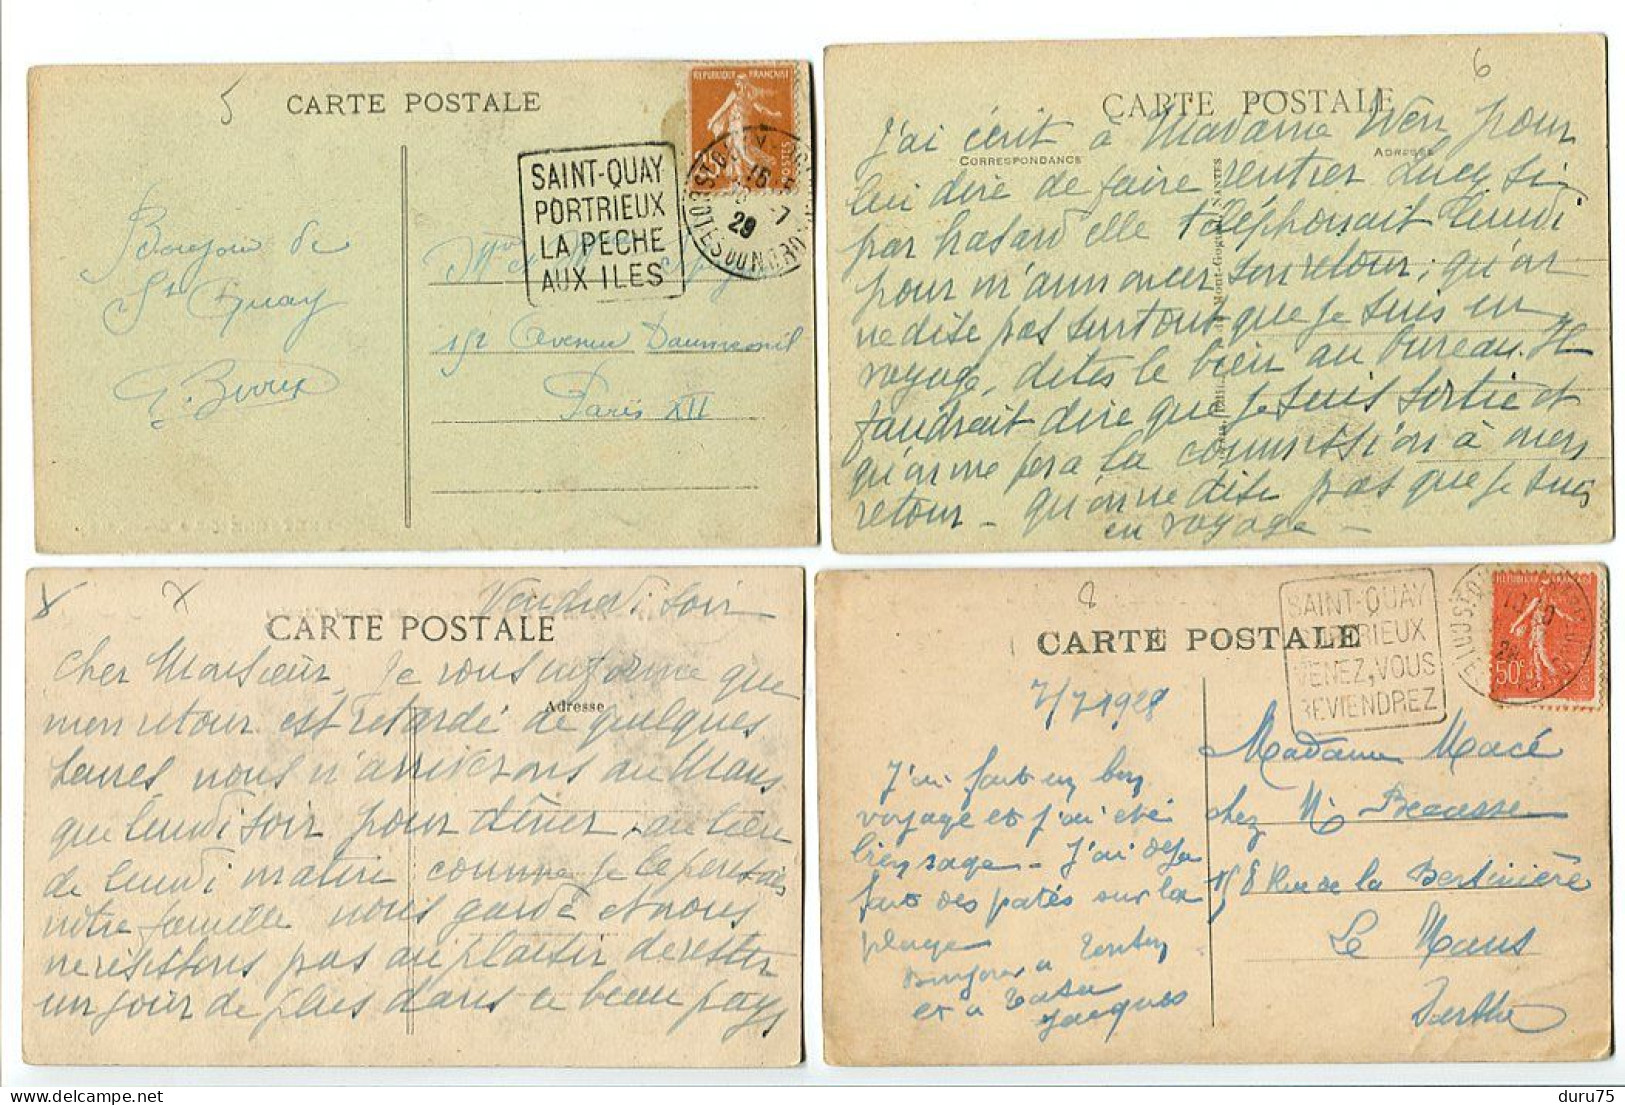 5
CARTE POSTALE
REPUBLIQUE FRANÇAISE
POSTES
SAINT-QUAY
PORTRIEUX
LA PECHE
AUX ILES
16
29 -7
COTES DU NORD
Bonjour de
St Quay
Mme
152 Avenue Daumesnil
Paris XII
6
CARTE POSTALE
CORRESPONDANCE
ADRESSE
J'ai écrit à Madame pour
lui dire de faire rentrer Lucy si
par hasard elle téléphonait lundi
pour m'annoncer son retour ; qu'on
ne dise pas surtout que je suis en
voyage, dites le bien au bureau. Il
faudrait dire que je suis sortie et
qu'on me fera la commission à mon
retour - qu'on ne dise pas que je suis
en voyage -
7
Vendredi soir
CARTE POSTALE
Adresse
Cher Monsieur, Je vous informe que
mon retour est retardé de quelques
heures, nous n'arriverons au Mans
que lundi soir pour dîner, au lieu
de lundi matin comme je le pensais
notre famille nous garde et nous
ne résistons pas au plaisir de rester
un jour de plus dans ce beau pays
8
CARTE POSTALE
SAINT-QUAY
PORTRIEUX
VENEZ, VOUS
REVIENDREZ
REPUBLIQUE FRANÇAISE
50c
7/7 1928
J'ai fait un bon
voyage et j'ai été
bien sage - J'ai déjà
fait des patés sur la
plage
Bonjour à Tonton
et à Tata
Jacques
Madame Macé
chez Mr Becasse
158 Rue de la Bertinière
Le Mans
Sarthe
duru75